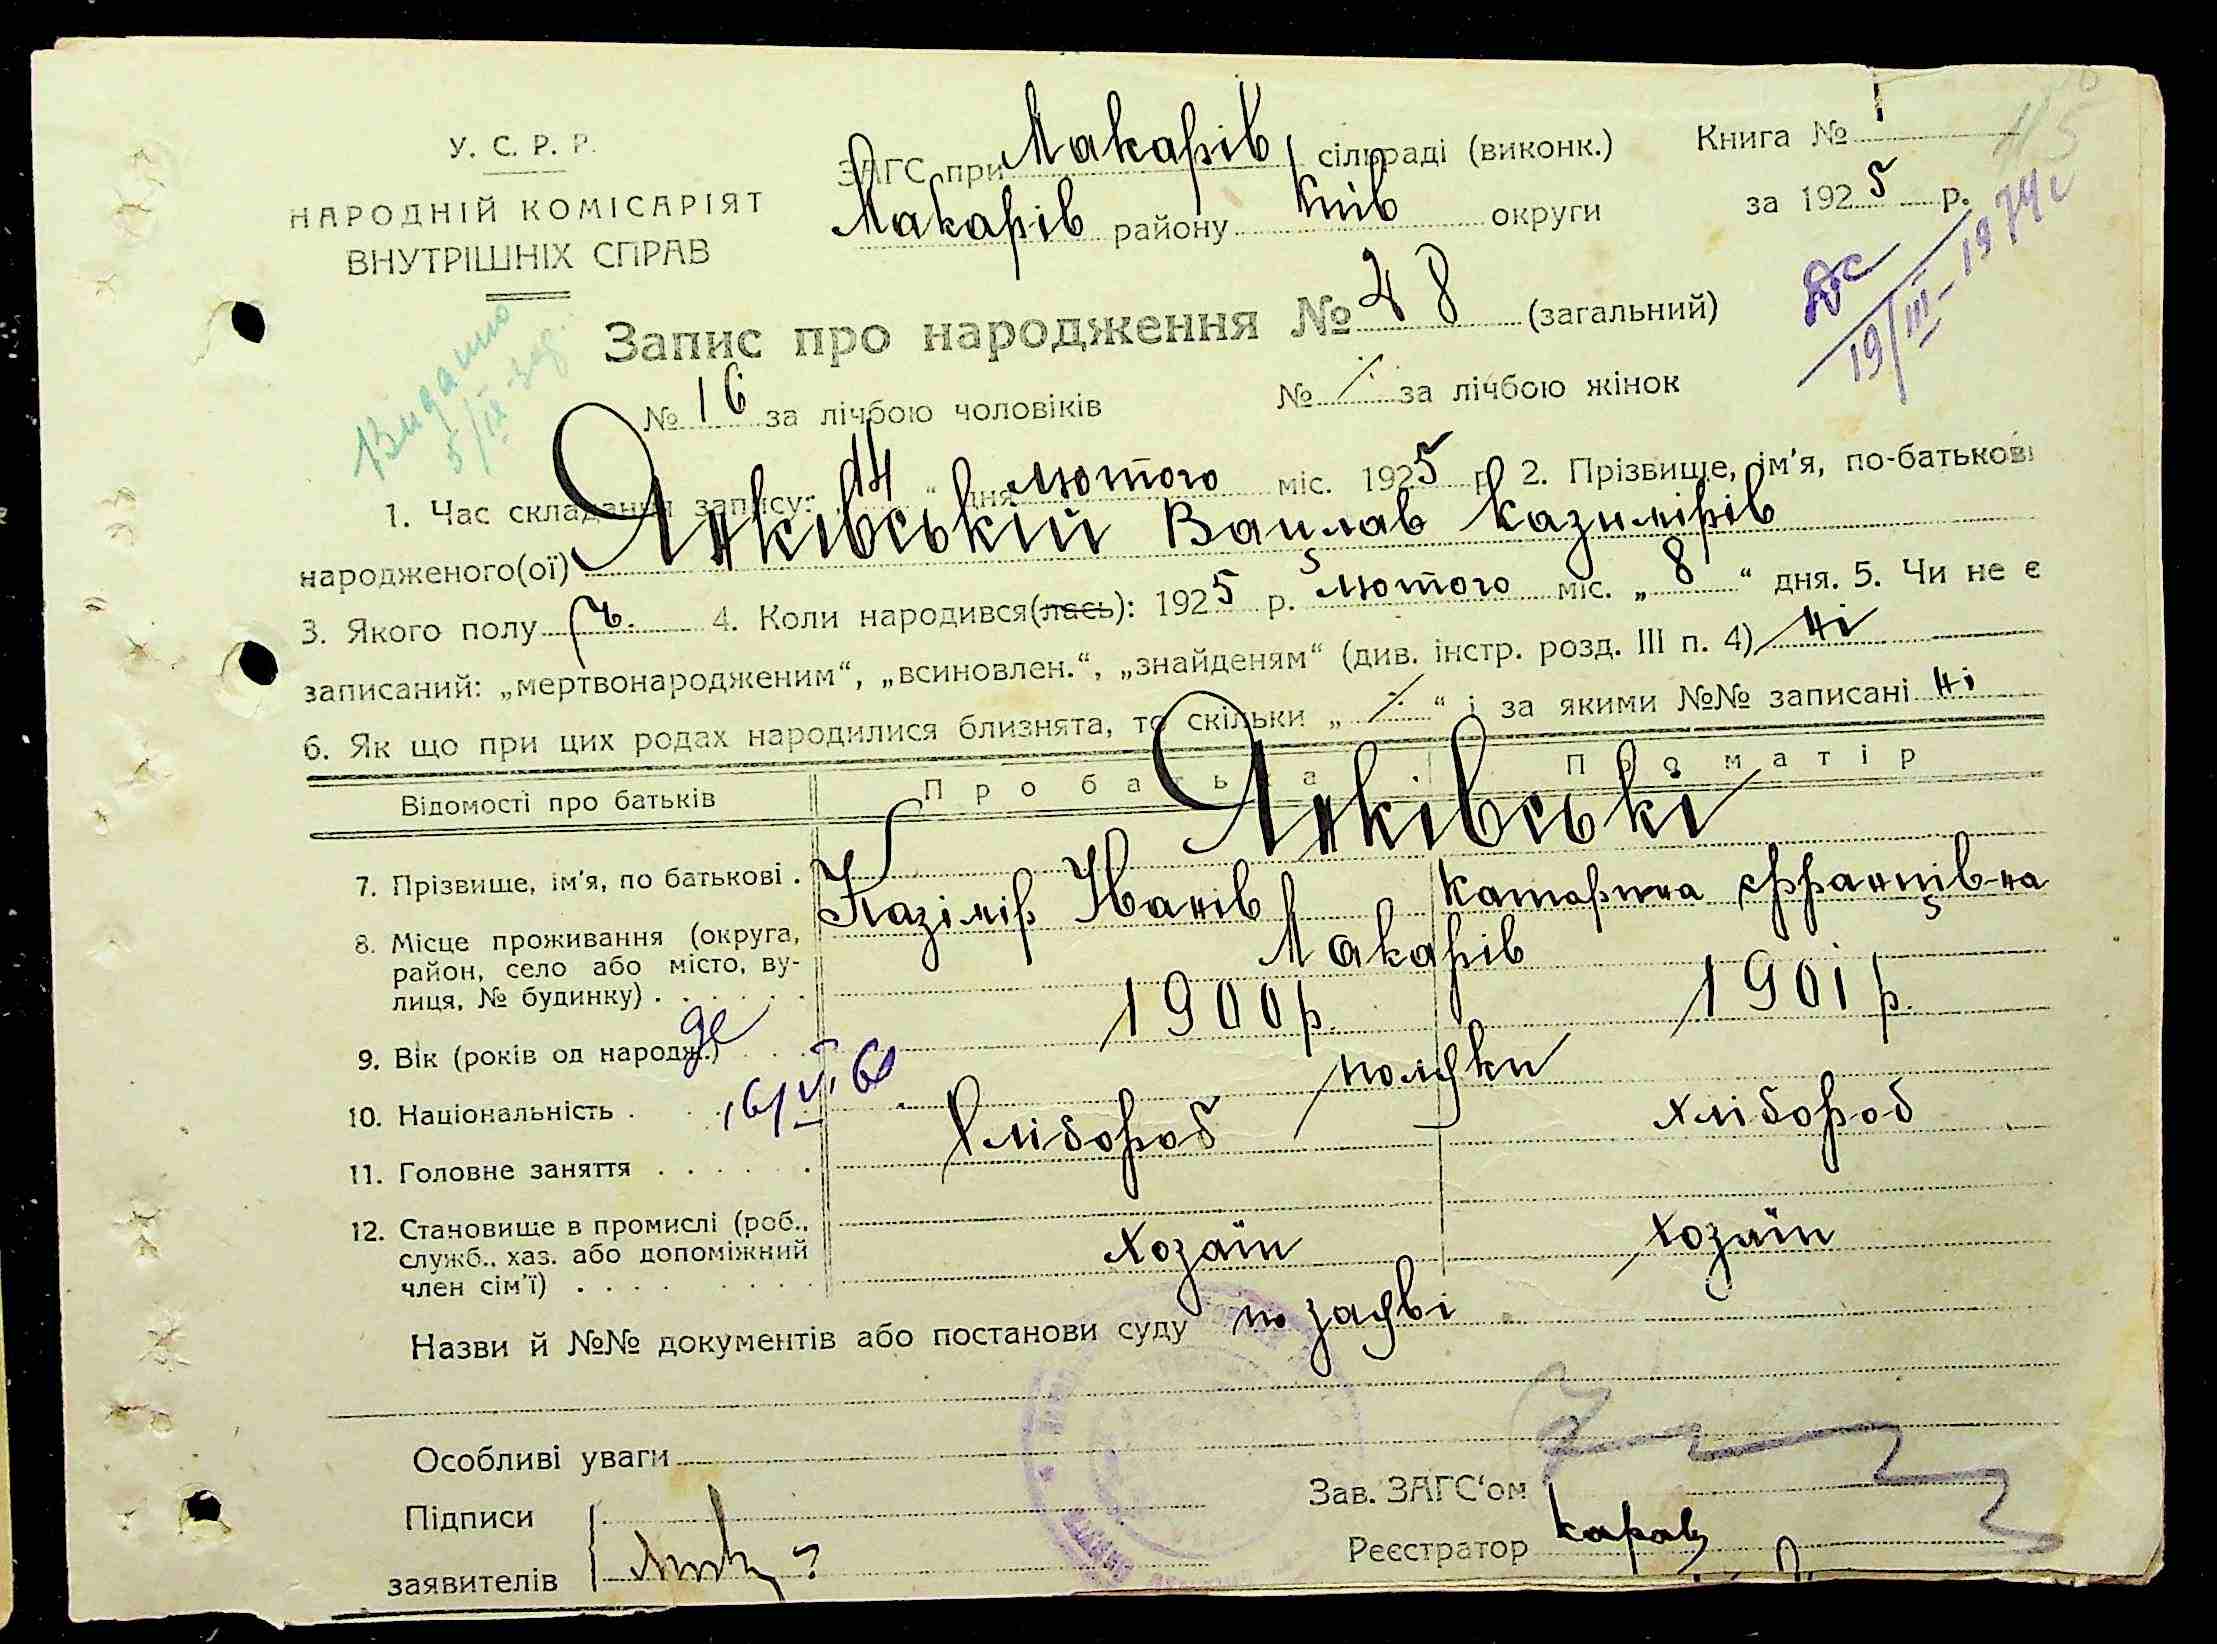 У. С. Р. Р.
НАРОДНІЙ КОМІСАРІЯТ
ВНУТРІШНІХ СПРАВ
ЗАГС при Макарів сільраді (виконк.)
Макарів району Київ округи
Книга № 1
115
за 1925 р.
19/III-1974 г
Запис про народження № 28 (загальний)
№ 16 за лічбою чоловіків № за лічбою жінок
Видано
5/IX
1. Час складання запису: „14“ дня лютого міс. 1925 р. 2. Прізвище, ім'я, по-батькові
народженого(ої) Янківський Вацлав Казимірів
3. Якого полу ч. 4. Коли народився(лась): 1925 р. лютого міс. „8“ дня. 5. Чи не є
записаний: „мертвонародженим“, „всиновлен.“, „знайденям“ (див. інстр. розд. III п. 4) ні
6. Як що при цих родах народилися близнята, то скільки „ “ і за якими №№ записані ні
Відомості про батьків Про батька Про матір
Янківські
7. Прізвище, ім'я, по батькові . Казімір Іванів Катарина Францівна
8. Місце проживання (округа,
район, село або місто, ву-
лиця, № будинку) . . . . . . Макарів
9. Вік (років од народж.) . . . 1900 р. 1901 р.
10. Національність . поляки
11. Головне заняття . . . . . . Хлібороб хлібороб
12. Становище в промислі (роб.,
служб., хаз. або допоміжний
член сім'ї) . . . . . . . . хозаїн хозаїн
Назви й №№ документів або постанови суду по заяві
Особливі уваги
Підписи
заявителів
Зав. ЗАГС'ом
Реєстратор